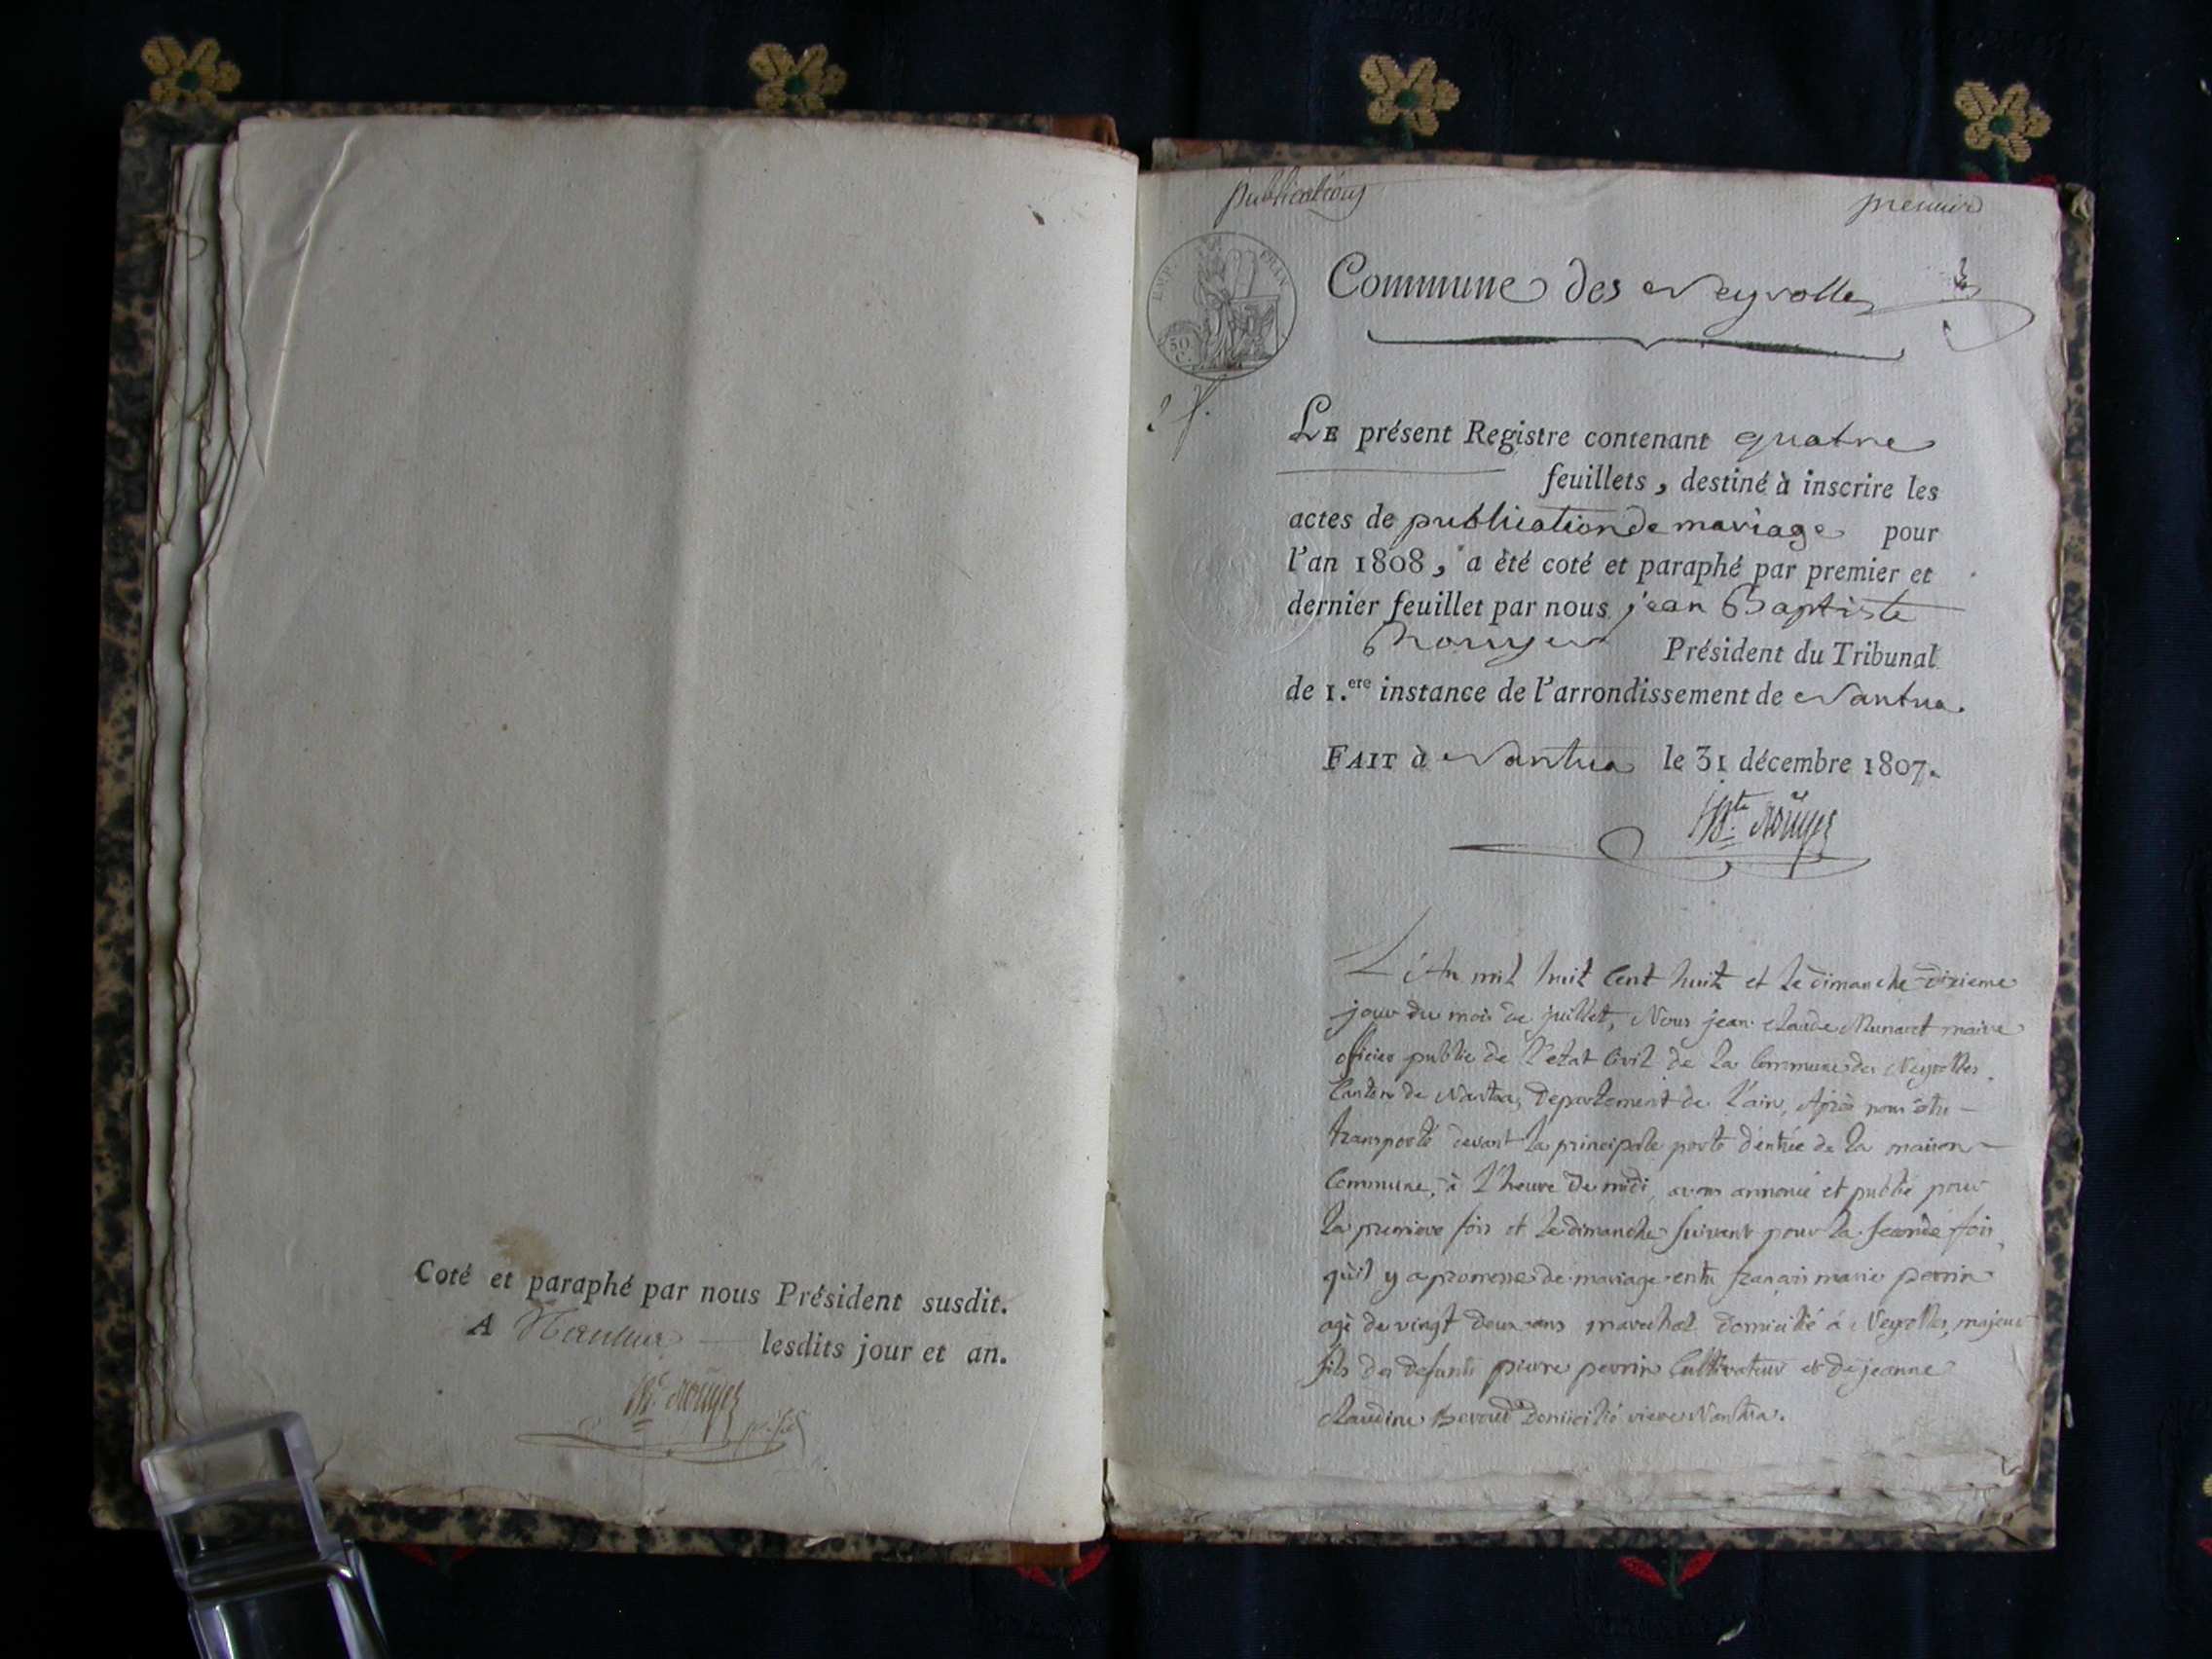 Coté et paraphé par nous Président susdit.
A Nantua lesdits jour et an.
Bte. Rouyer
publications
premier
EMP. FRAN.
50 C.
Commune des Neyrolles
LE présent Registre contenant quatre
feuillets, destiné à inscrire les
actes de publication de mariage pour
l'an 1808, a été coté et paraphé par premier et
dernier feuillet par nous jean Baptiste
Rouyer Président du Tribunal
de 1.ere instance de l'arrondissement de Nantua.
FAIT à Nantua le 31 décembre 1807.
Bte. Rouyer
L'An mil huit Cent huit et le dimanche dixieme
jour du mois de juillet, Nous jean claude Munaret maire
officier public de l'etat Civil de la Commune des Neyrolles,
Canton de Nantua, Departement de l'ain, Après nous être
transporté devant la principale porte d'entrée de la maison
Commune, à l'heure de midi, avons annoncé et publié pour
la premiere fois et le dimanche suivant pour la seconde fois,
qu'il y a promesse de mariage entre françois marie perrin
agé de vingt deux ans marechal domicilié à Neyrolles, majeur
fils des defunts pierre perrin Cultivateur et de jeanne
claudine domicilié Nantua.